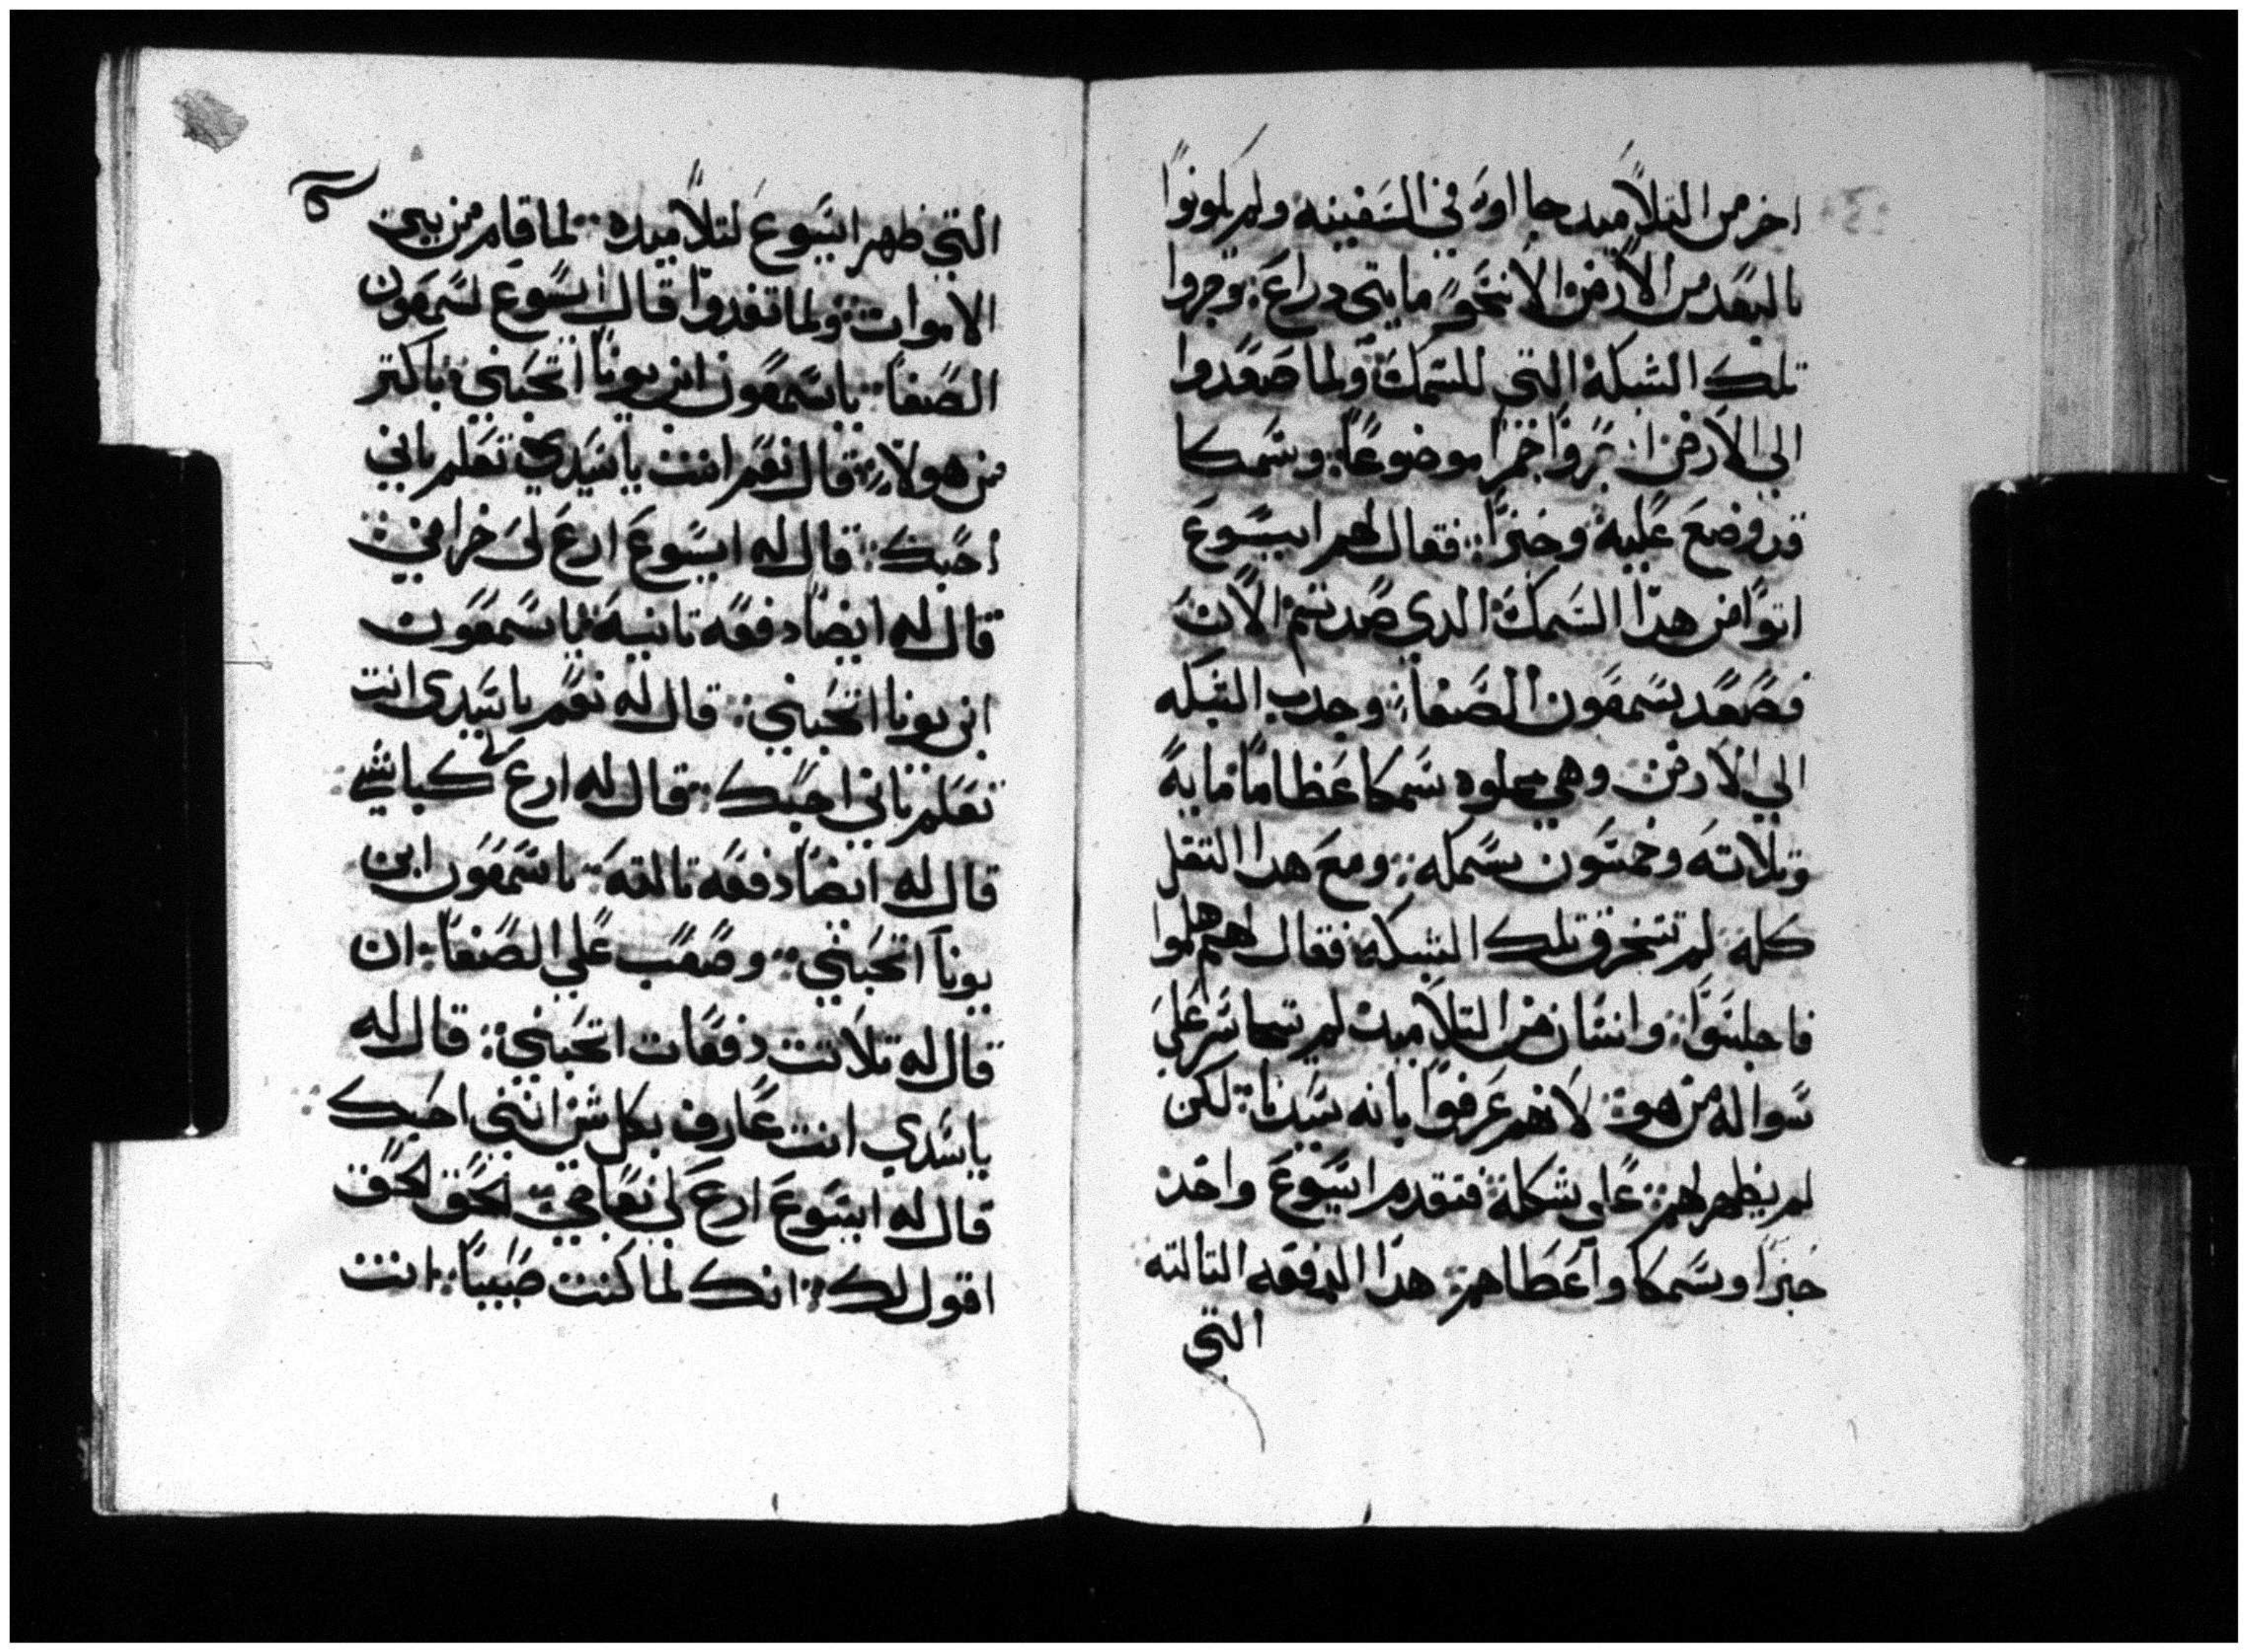 اخر من التلاميد جا اوه في السفينه ولم يكونوا
بالبعد من الارض الا نحو مايتي دراع وجروا
تلك الشبكة التي للسمك ولما صعدوا
الي الارض نزروا خمرا موضوعا وسمكا
قد وضع عليه وخبزا فقال لهم ايسوع
اتوا من هدا السمك الدي صدتم الان
فصعد سمعون الصفا وجدب الشبكه
الي الارض وهي مملوه سمكا عظاما مايه
وتلاته وخمسون سمكه ومع هدا التقل
كله لم تتخرق تلك الشبكة فقال لهم هلموا
فاجلسوا وانسان من التلاميد لم يتجاسر علي
سواله من هو لانهم عرفوا بانه سيدنا لكن
لم يظهر لهم علي شكله فتقدم ايسوع واخد
خبزا وسمكا واعطاهم هدا الدفعه التالته
التي
التي ظهر ايسوع لتلاميده لما قام من بين
الاموات ولما تغدوا قال ايسوع لسمعون
الصفا ياسمعون ابن يونا اتحبني باكتر
من هولاء قال نعم انت ياسيدي تعلم باني
احبك قال له ايسوع ارع لي خرافي
قال له ايضا دفعه تانيه ياسمعون
ابن يونا اتحبني قال له نعم ياسيدي انت
تعلم باني احبك قال له ارع لي كباشي
قال له ايضا دفعه تالته ياسمعون ابن
يونا اتحبني وصعب علي الصفا ان
قال له تلاتت دفعات اتحبني قال له
ياسيدي انت عارف بكل شي انني احبك
قال له ايسوع ارع لي نعاجي لحق لحق
اقول لك انك لما كنت صبيا انت